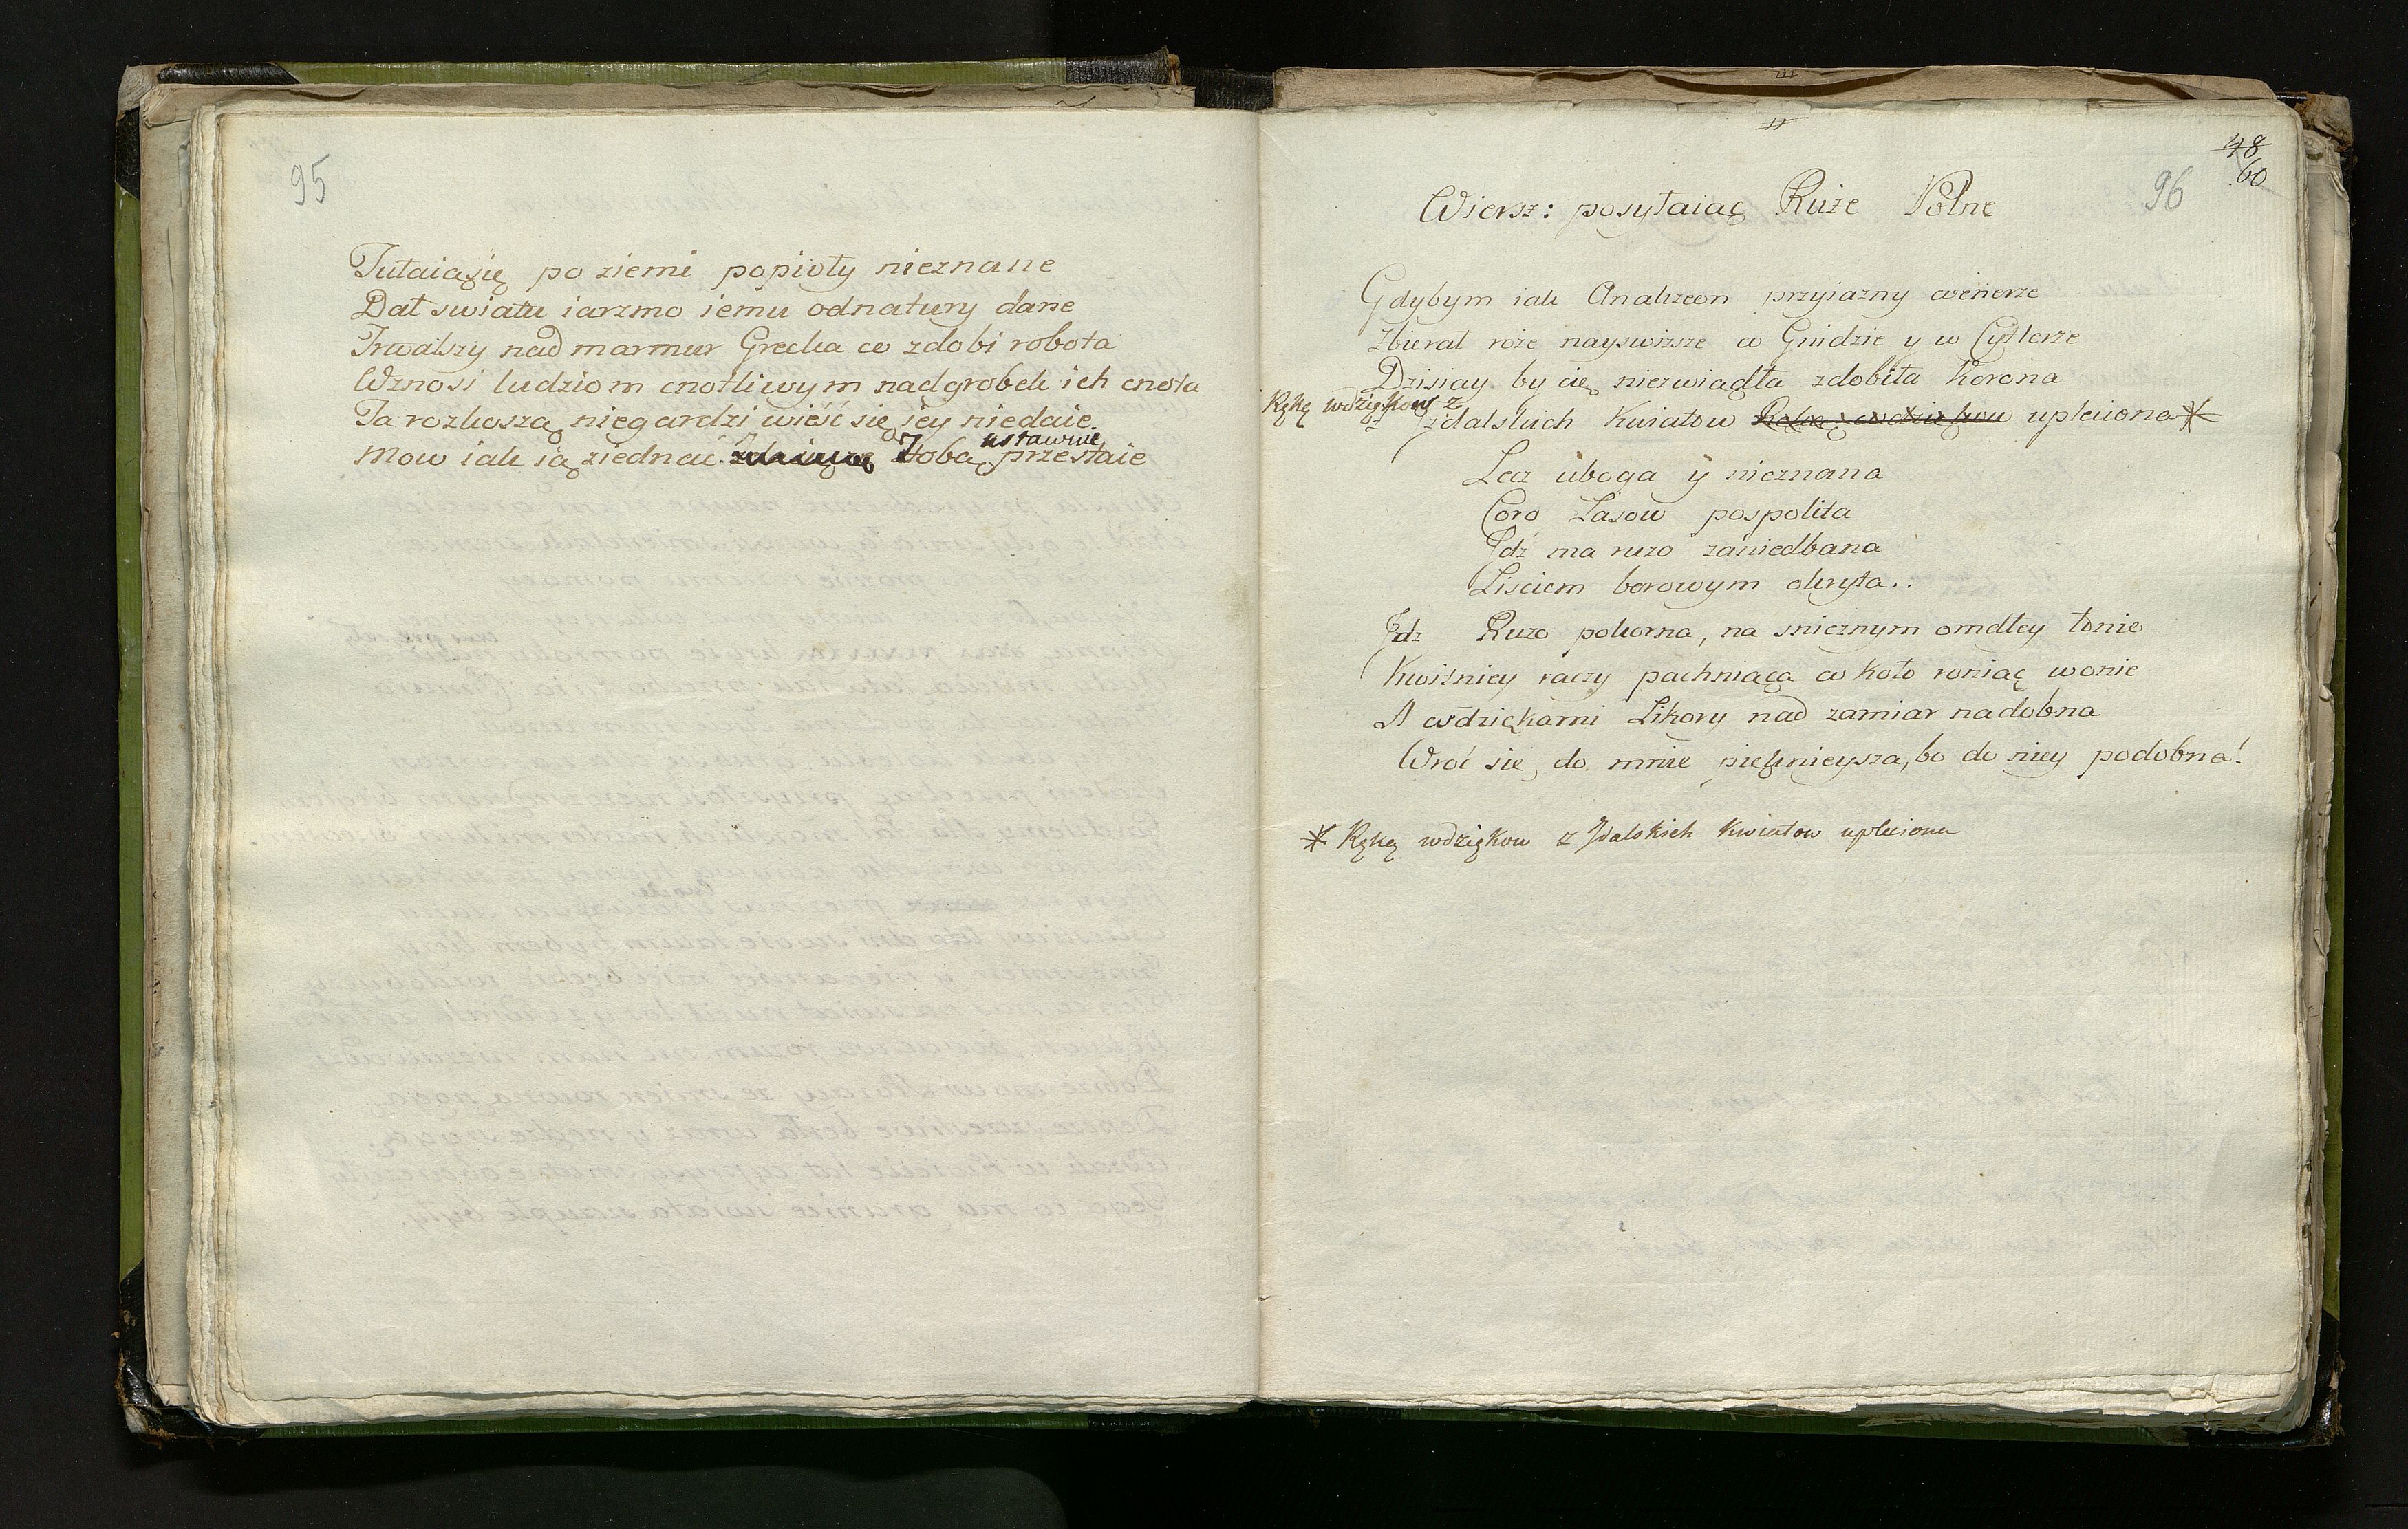 95
Tułaiąsię po ziemi popioły nieznane
Dał swiatu iarzmo iemu odnatury dane
Trwalszy nad marmur Grecka co zdobi robota
Wznosi ludziom cnotliwym nadgrobek ich cnota
Ta rozkoszą niegardzi wieść się iey niedaie.
Mow iak ią ziednać Tobą ustawnie przestaie
48
60
96
Wiersz: posyłaiąc Ruże Polne
Gdybym iak Anakreon przyiazny wenerze
Zbierał roże nayswiższe w Gnidzie y w Cytterze
Dzisiay by cię niezwiądła zdobiła Korona
Ręką wdzięków z
z jdalskich Kwiatow Ręką wdziekow upleciona *
Lecz uboga y nieznana
Coro Lasow pospolita
Jdź ma ruzo zaniedbana
Lisciem borowym okryta..
Jdz Ruzo pokorna, na snieznym omdley łonie
Kwitniey raczy pachniącą w koło roniąc wonie
A wdziękami Likory nad zamiar nadobna
Wroć się do mnie pięknieysza, bo do niey podobna!
* Ręką wdzięków z Jdalskich Kwiatow upleciona